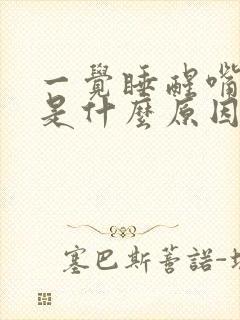 一覺睡醒嘴
是什麼原因
塞巴斯蒂諾-